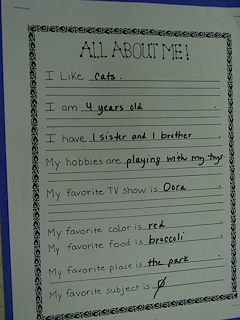 ALL ABOUT ME!
I Like cats.
I am 4 years old.
I have 1 sister and 1 brother.
My hobbies are playing with my toys
My favorite TV show is Dora.
My favorite color is red.
My favorite food is broccoli.
My favorite place is the park.
My favorite subject is Ø.